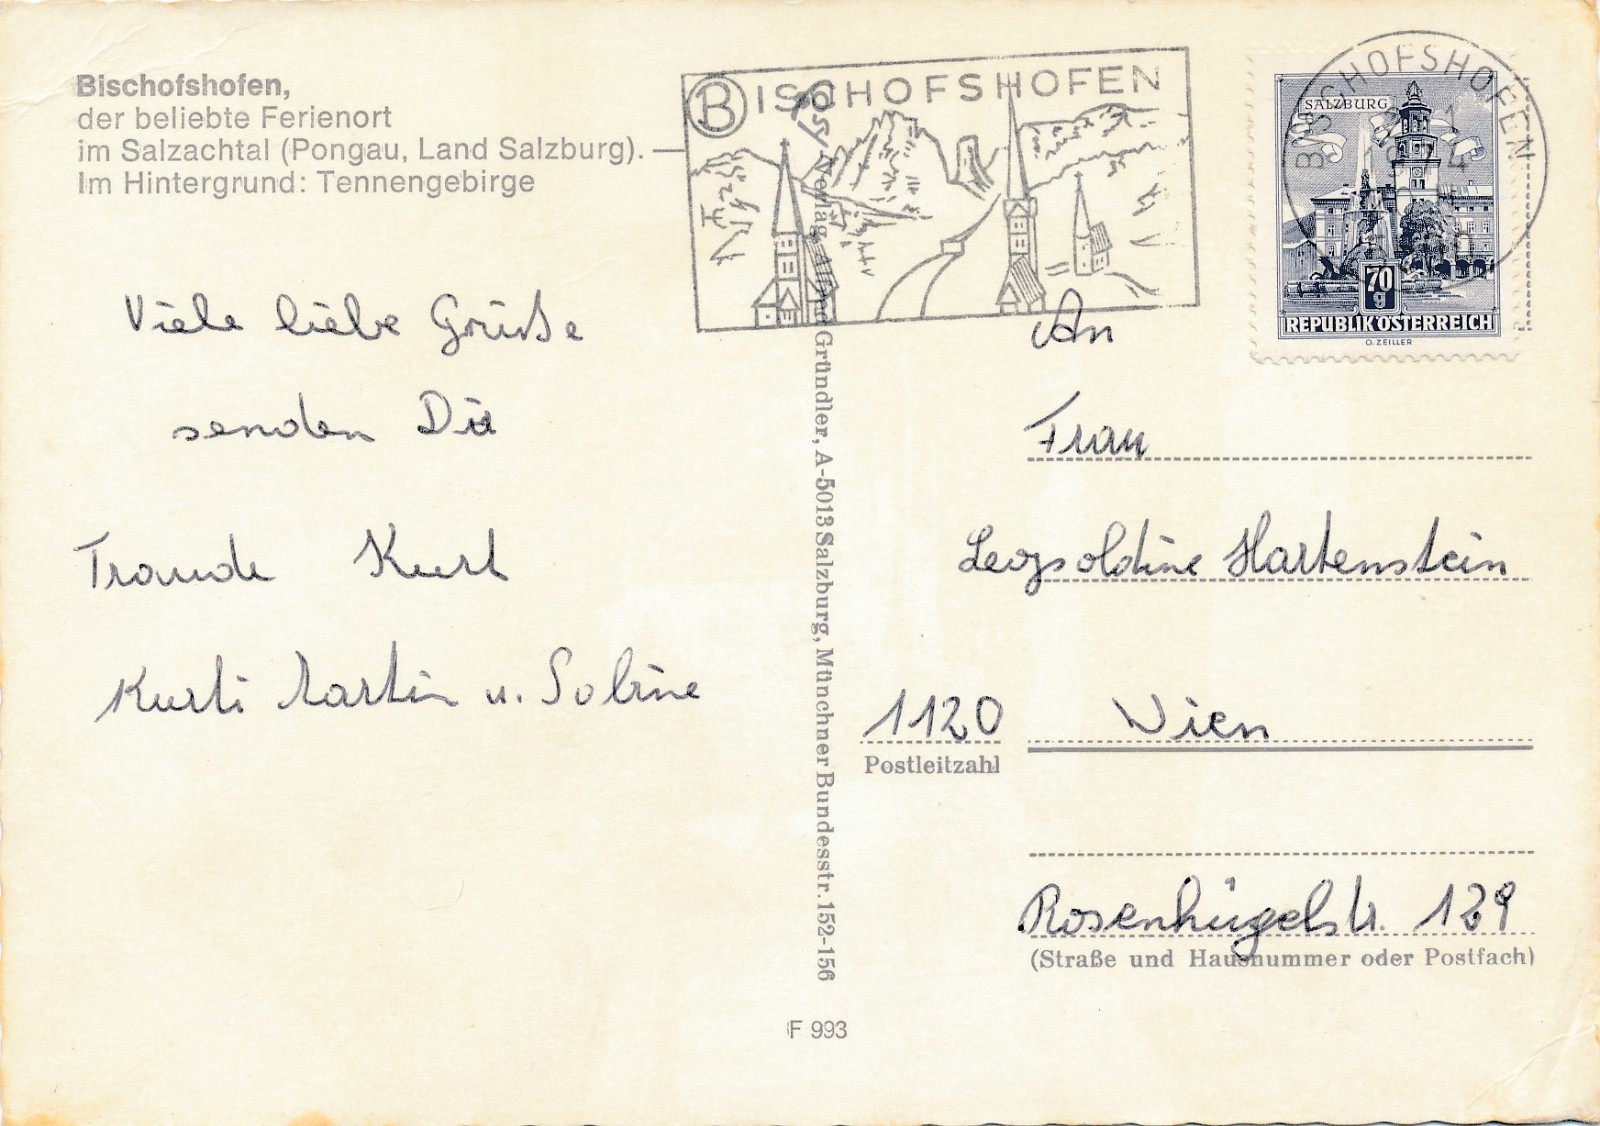 Bischofshofen,
der beliebte Ferienort
im Salzachtal (Pongau, Land Salzburg).
Im Hintergrund: Tennengebirge
Viele liebe Grüße
senden Dir
Traude Kurt
Kurti Martin u. Sabine
BISCHOFSHOFEN
Verlag Alfred Gründler, A-5013 Salzburg, Münchner Bundesstr. 152-156
F 993
BISCHOFSHOFEN
SALZBURG
70
g
REPUBLIK ÖSTERREICH
O. ZEILLER
An
Frau
Leopoldine Hartenstein
1120 Wien
Postleitzahl
Rosenhügelstr. 129
(Straße und Hausnummer oder Postfach)